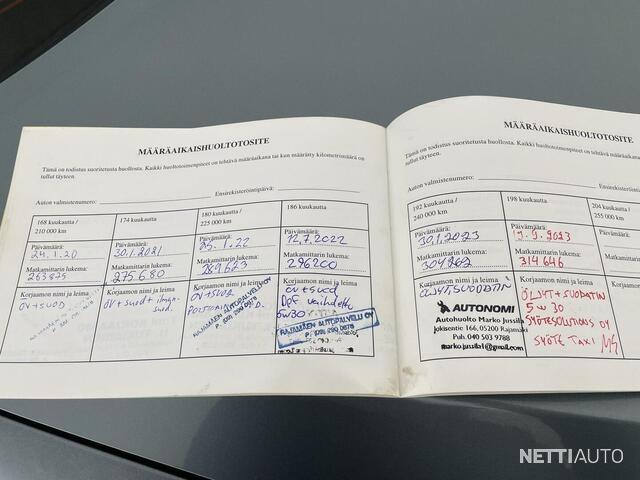 MÄÄRÄAIKAISHUOLTOTOSITE
Tämä on todistus suoritetusta huollosta. Kaikki huoltotoimenpiteet on tehtävä määräaikana tai kun määrätty kilometrimäärä on
tullut täyteen.
Auton valmistenumero:
Ensirekisteröintipäivä:
168 kuukautta /
210 000 km
174 kuukautta
180 kuukautta /
225 000 km
186 kuukautta
Päivämäärä:
24.1.20
Päivämäärä:
30.1.2021
Päivämäärä:
25.1.22
Päivämäärä:
12.7.2022
Matkamittarin lukema:
263875
Matkamittarin lukema:
275680
Matkamittarin lukema:
289623
Matkamittarin lukema:
296200
Korjaamon nimi ja leima
öv+suod
Korjaamon nimi ja leima
öv+suod+ilman-
suod.
Korjaamon nimi ja leima
öv+suod
RAJAMÄEN AUTOPALVELU OY
P. (09) 290 0878
Korjaamon nimi ja leima
öv+suod
DPF vaihdettu
5w30
RAJAMÄEN AUTOPALVELU OY
P. (09) 290 0878
MÄÄRÄAIKAISHUOLTOTOSITE
Tämä on todistus suoritetusta huollosta. Kaikki huoltotoimenpiteet on tehtävä määräaikana
tullut täyteen.
Auton valmistenumero:
Ensirekis
192 kuukautta /
240 000 km
198 kuukautta
204 kuu
255 000
Päivämäärä:
30.1.2023
Päivämäärä:
19.9.2023
Päiväm
Matkamittarin lukema:
304862
Matkamittarin lukema:
314646
Matkan
Korjaamon nimi ja leima
ÖLJYT, SUODATIN
AUTONOMI
Autohuolto Marko Jussila
Jokisentie 166, 05200 Rajamäki
Puh. 040 503 9788
marko.jussila1@gmail.com
Korjaamon nimi ja leima
ÖLJYT+SUODATIN
5w30
SYÖTESOLUTIONS OY
SYÖTE TAXI
Korja
NETTIAUTO